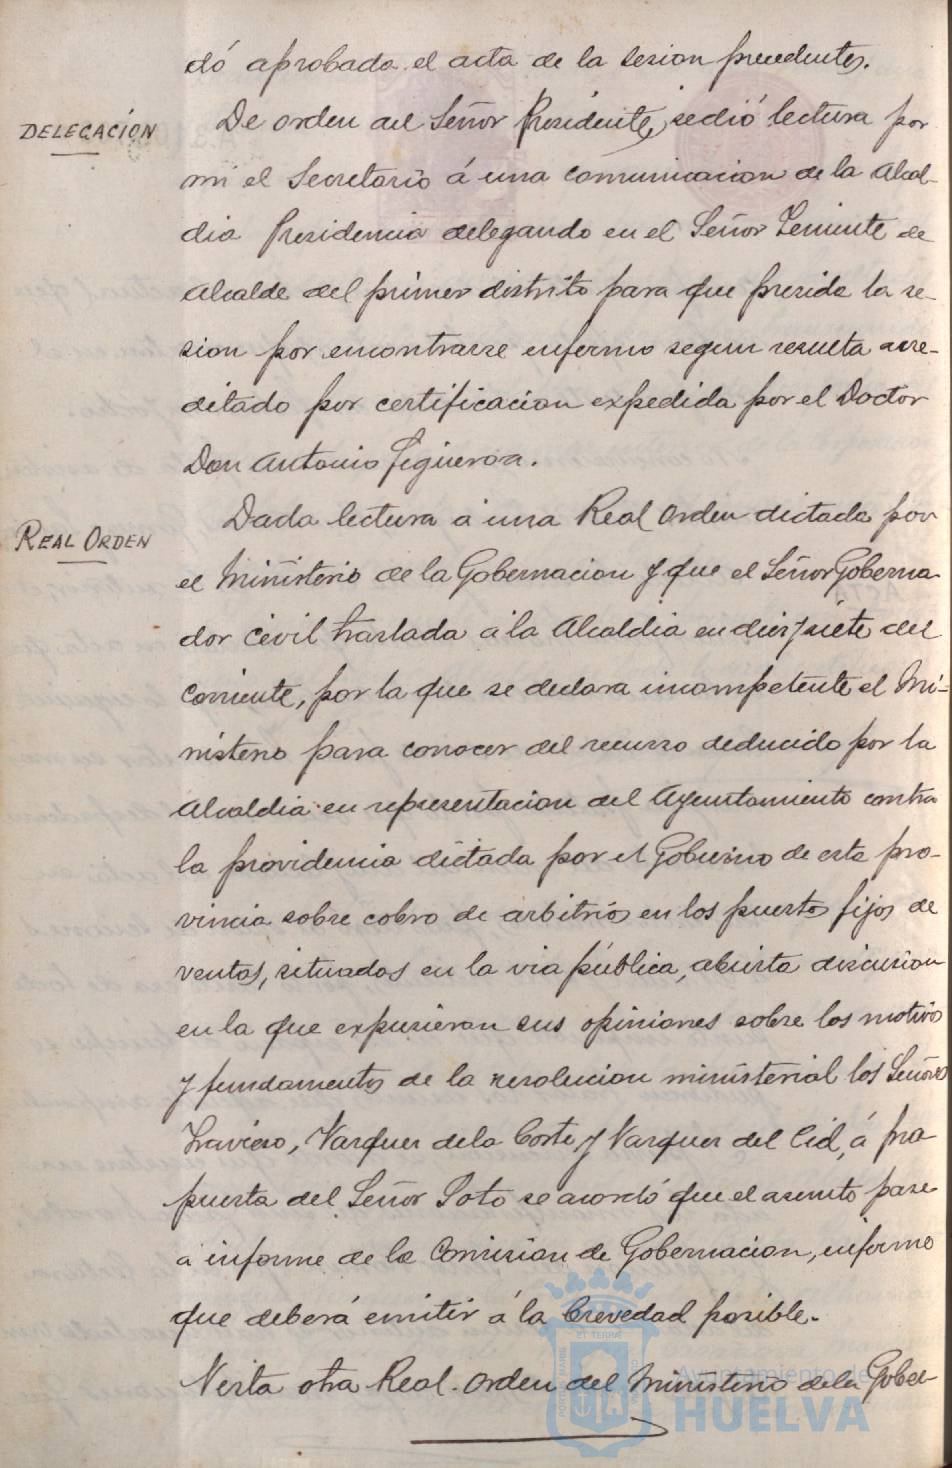 dó aprobada el acta de la sesion precedente.
DELEGACIÓN
De orden del Señor Presidente, se dió lectura por
mi el Secretario á una comunicacion de la Alcal-
dia Presidencia delegando en el Señor Teniente de
Alcalde del primer distrito para que presida la se-
sion por encontrarse enfermo segun resulta acre-
ditado por certificacion expedida por el Doctor
Don Antonio Figueroa.
REAL ORDEN
Dada lectura á una Real Orden dictada por
el Ministerio de la Gobernacion y que el Señor Goberna-
dor Civil traslada á la Alcaldia en diez y siete del
corriente, por la que se declara incompetente el Mi-
nisterio para conocer del recurso deducido por la
Alcaldia en representacion del Ayuntamiento contra
la providencia dictada por el Gobierno de esta pro-
vincia sobre cobro de arbitrios en los puestos fijos de
ventas, situados en la via pública, abierta discusion
en la que expusieran sus opiniones sobre los motivos
y fundamentos de la resolucion ministerial los Señores
Vazquez de la Corte y Vazquez del Cid, á pro-
puesta del Señor Soto se acordó que el asunto pase
á informe de la Comision de Gobernacion, informe
que deberá emitir á la brevedad posible.
Vista otra Real Orden del Ministerio de la Gober-
Ayuntamiento de
HUELVA